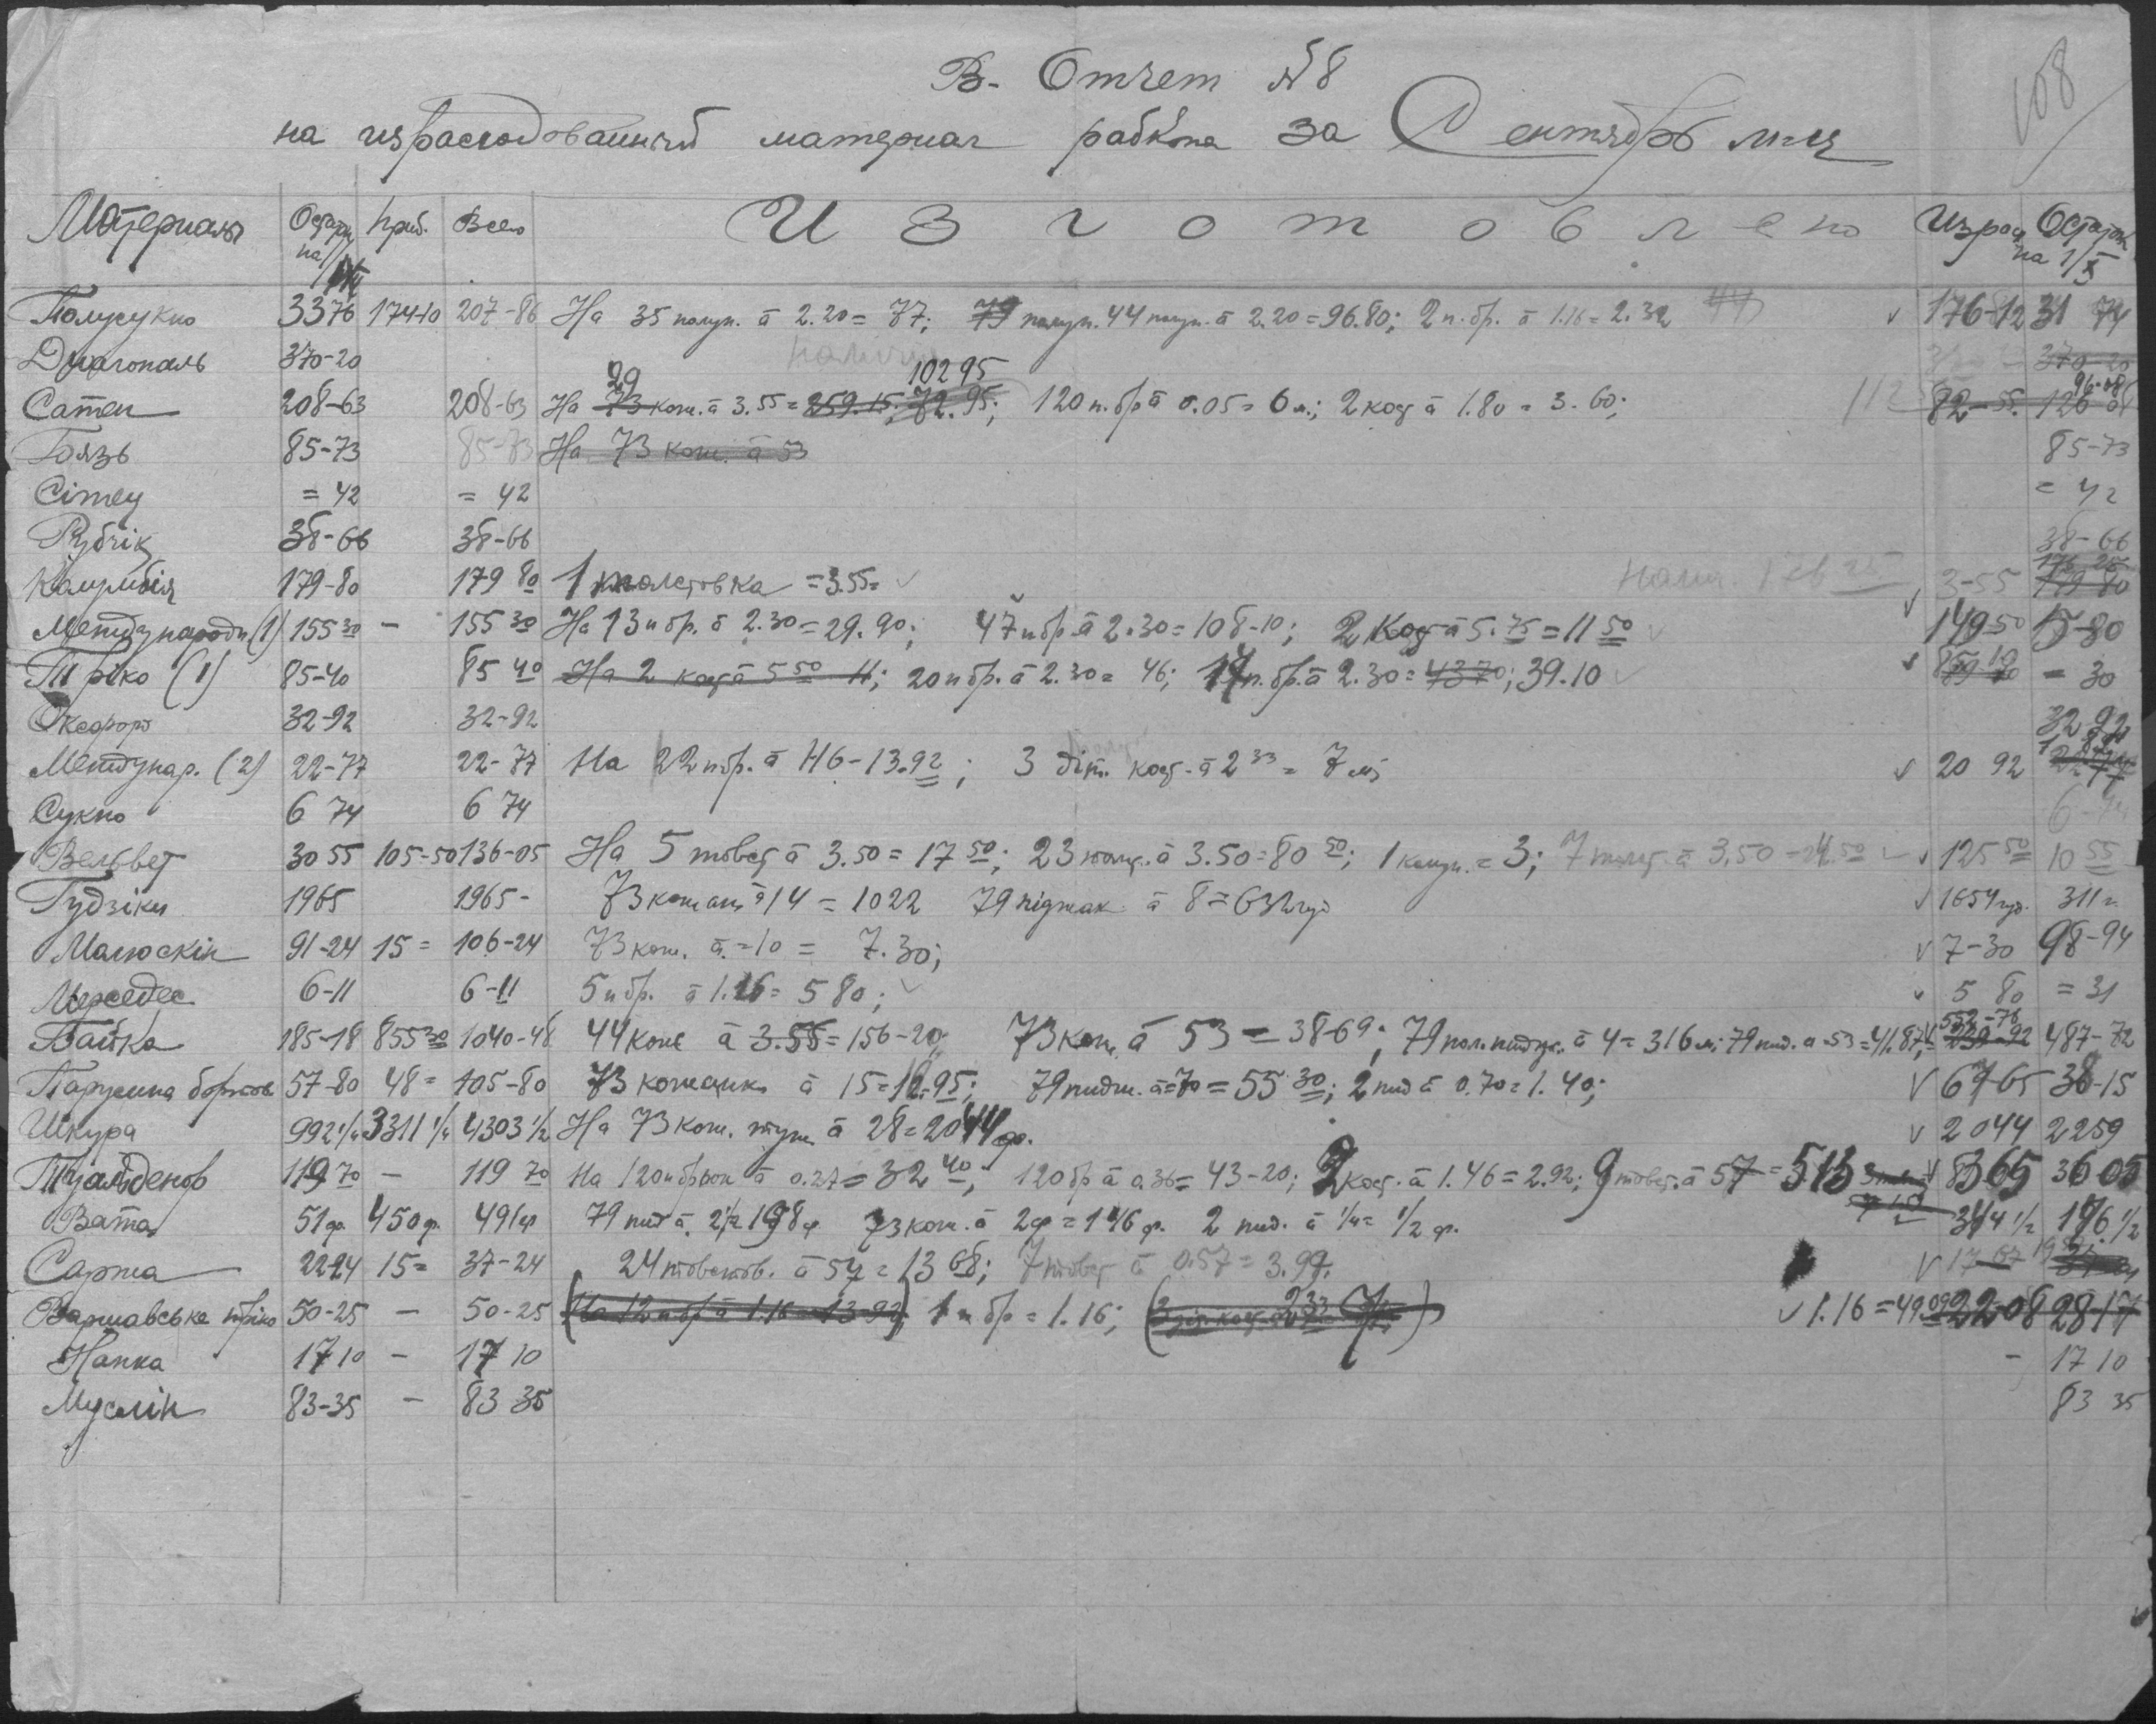 108
В. Отчет №8
на израсходованный материал рабкопа за Сентябрь м-ц
Материалы Остаток на 1/IX Приб. Всего Изготовлено Израсх Остаток на 1/X
Полусукно 33 76 174-10 207-86 На 35 полуп. а 2.20 = 77; 79 полуп. 44 полуп. а 2.20 = 96.80; 2 п. бр. а 1.16 = 2.32 176-12 31 74
Диагональ 370-20 370-20
Сатен 208-63 208-63 На 73 29 кож. а 3.55 = 259.15; 72.95; 102 95 120 п. бр а 0.05 = 6 м.; 2 кост а 1.80 = 3.60; 112 82-55. 126 08 96-08
Бязь 85-73 85-73 На 73 кож. а 53 85-73
Сітец = 42 = 42 = 42
Рубчік 38-66 38-66 38-66
Калумбія 179-80 179 80 1 толстовка = 3.55 = 3-55 179 80 176 25
Междунароdн (1) 155 30 - 155 30 На 13 п бр. а 2.30 = 29.90; 47 п бр. а 2.30 = 108-10; 2 Кост а 5.75 = 11 50 149-50 5-80
Тріко (1) 85-40 85 40 На 2 кост а 5 50 11; 20 п бр. а 2.30 = 46; 17 п. бр. а 2.30 = 43 70; 39.10 85 10 = 30
Оксфорт 32-92 32-92 32-92
Междунар. (2) 22-77 22-77 На 22 п бр. а 46-13.92; 3 діт. кост. а 2 33 = 7 м; 20 92 22 77
Сукно 6 74 6 74 6-74
Вельвет 30 55 105-50 136-05 На 5 товст а 3.50 = 17 50; 23 толст. а 3.50 = 80 50; 1 = 3; 7 толст. а 3.50 = 24.50 125 50 10 55
Гудзіки 1965 1965- 73 кожан а 14 = 1022 79 піджак а 8 = 632 гуд 1654 гуд. 311 г.
Малюскін 91-24 15 = 106-24 73 кож. а. = 10 = 7.30; 7-30 98-94
Мерседес 6-11 6-11 5 п бр. а 1.16 = 5 80; 5 80 = 31
Байка 185-18 855 30 1040-48 44 кож а 3.55 = 156-20; 73 кож. а 53 = 38-69; 79 пол. пидж. а 4 = 316 м; 79 пид. а -53 = 41.87; 552-76 487-72
Парусина бортов 57-80 48 = 105-80 73 кожанк. а 15 = 10.95; 79 пидж. а = 70 = 55 30; 2 пид а 0.70 = 1.40; 67-65 38-15
Шкура 992 1/4 3311 1/4 4303 1/2 На 73 кож. туж. а 28 = 2044 ф. 2044 2259
119 70 - 119 70 На 120 п брюк а 0.27 = 32 40; 120 бр а 0.36 = 43-20; 2 кост. а 1.46 = 2.92; 9 товст. а 57 = 513 83 65 36 05
Вата 51 ф. 450 ф. 491 ф 79 пид а 2 1/2 198 ф 73 кож. а 2 ф = 146 ф. 2 пид. а 1/4 = 1/2 ф. 344 1/2 176 1/2
Саржа 22-24 15 = 37-24 24 товстов. а 57 = 13 68; 7 товст а 0.57 = 3.99. 17-67
Варшавське тріко 50-25 - 50-25 (На 12 п бр а 1.16 = 13-92) 1 п бр = 1.16; 1.16 = 49.09 22-08 28-17
Напка 17 10 - 17 10 - 17 10
Муслін 83-35 - 83 35 83 35